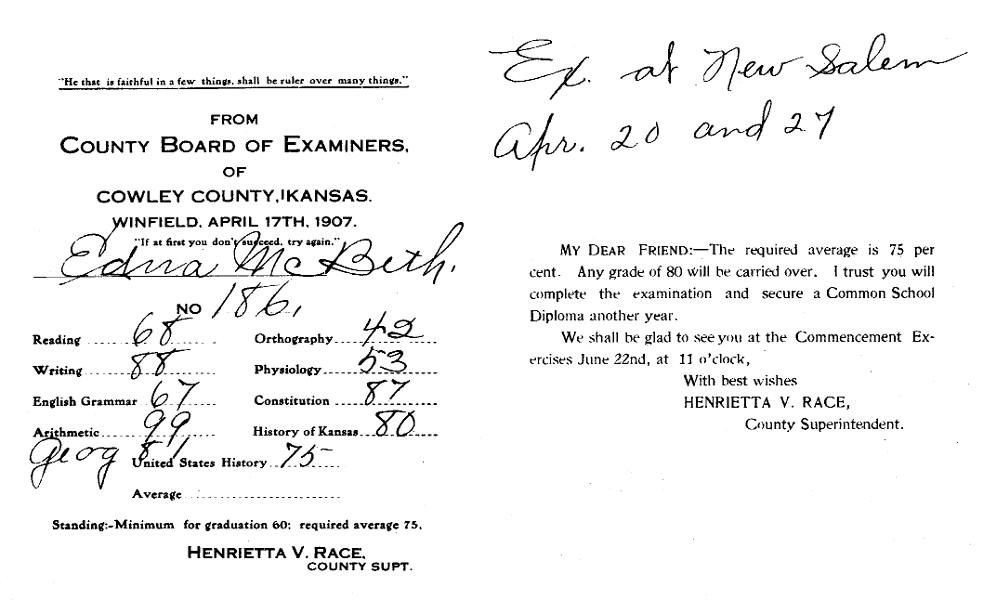 "He that is faithful in a few things, shall be ruler over many things."
FROM
COUNTY BOARD OF EXAMINERS,
OF
COWLEY COUNTY, KANSAS.
WINFIELD, APRIL 17TH, 1907.
"If at first you don't succeed, try again."
Edna McBeth.
NO 186.
Reading 68 Orthography 42
Writing 88 Physiology 53
English Grammar 67 Constitution 87
Arithmetic 99 History of Kansas 80
Geog 81
United States History 75
Average
Standing:-Minimum for graduation 60; required average 75.
HENRIETTA V. RACE,
COUNTY SUPT.
Ex. at New Salem
Apr. 20 and 27
MY DEAR FRIEND:—The required average is 75 per
cent. Any grade of 80 will be carried over. I trust you will
complete the examination and secure a Common School
Diploma another year.
We shall be glad to see you at the Commencement Ex-
ercises June 22nd, at 11 o'clock,
With best wishes
HENRIETTA V. RACE,
County Superintendent.